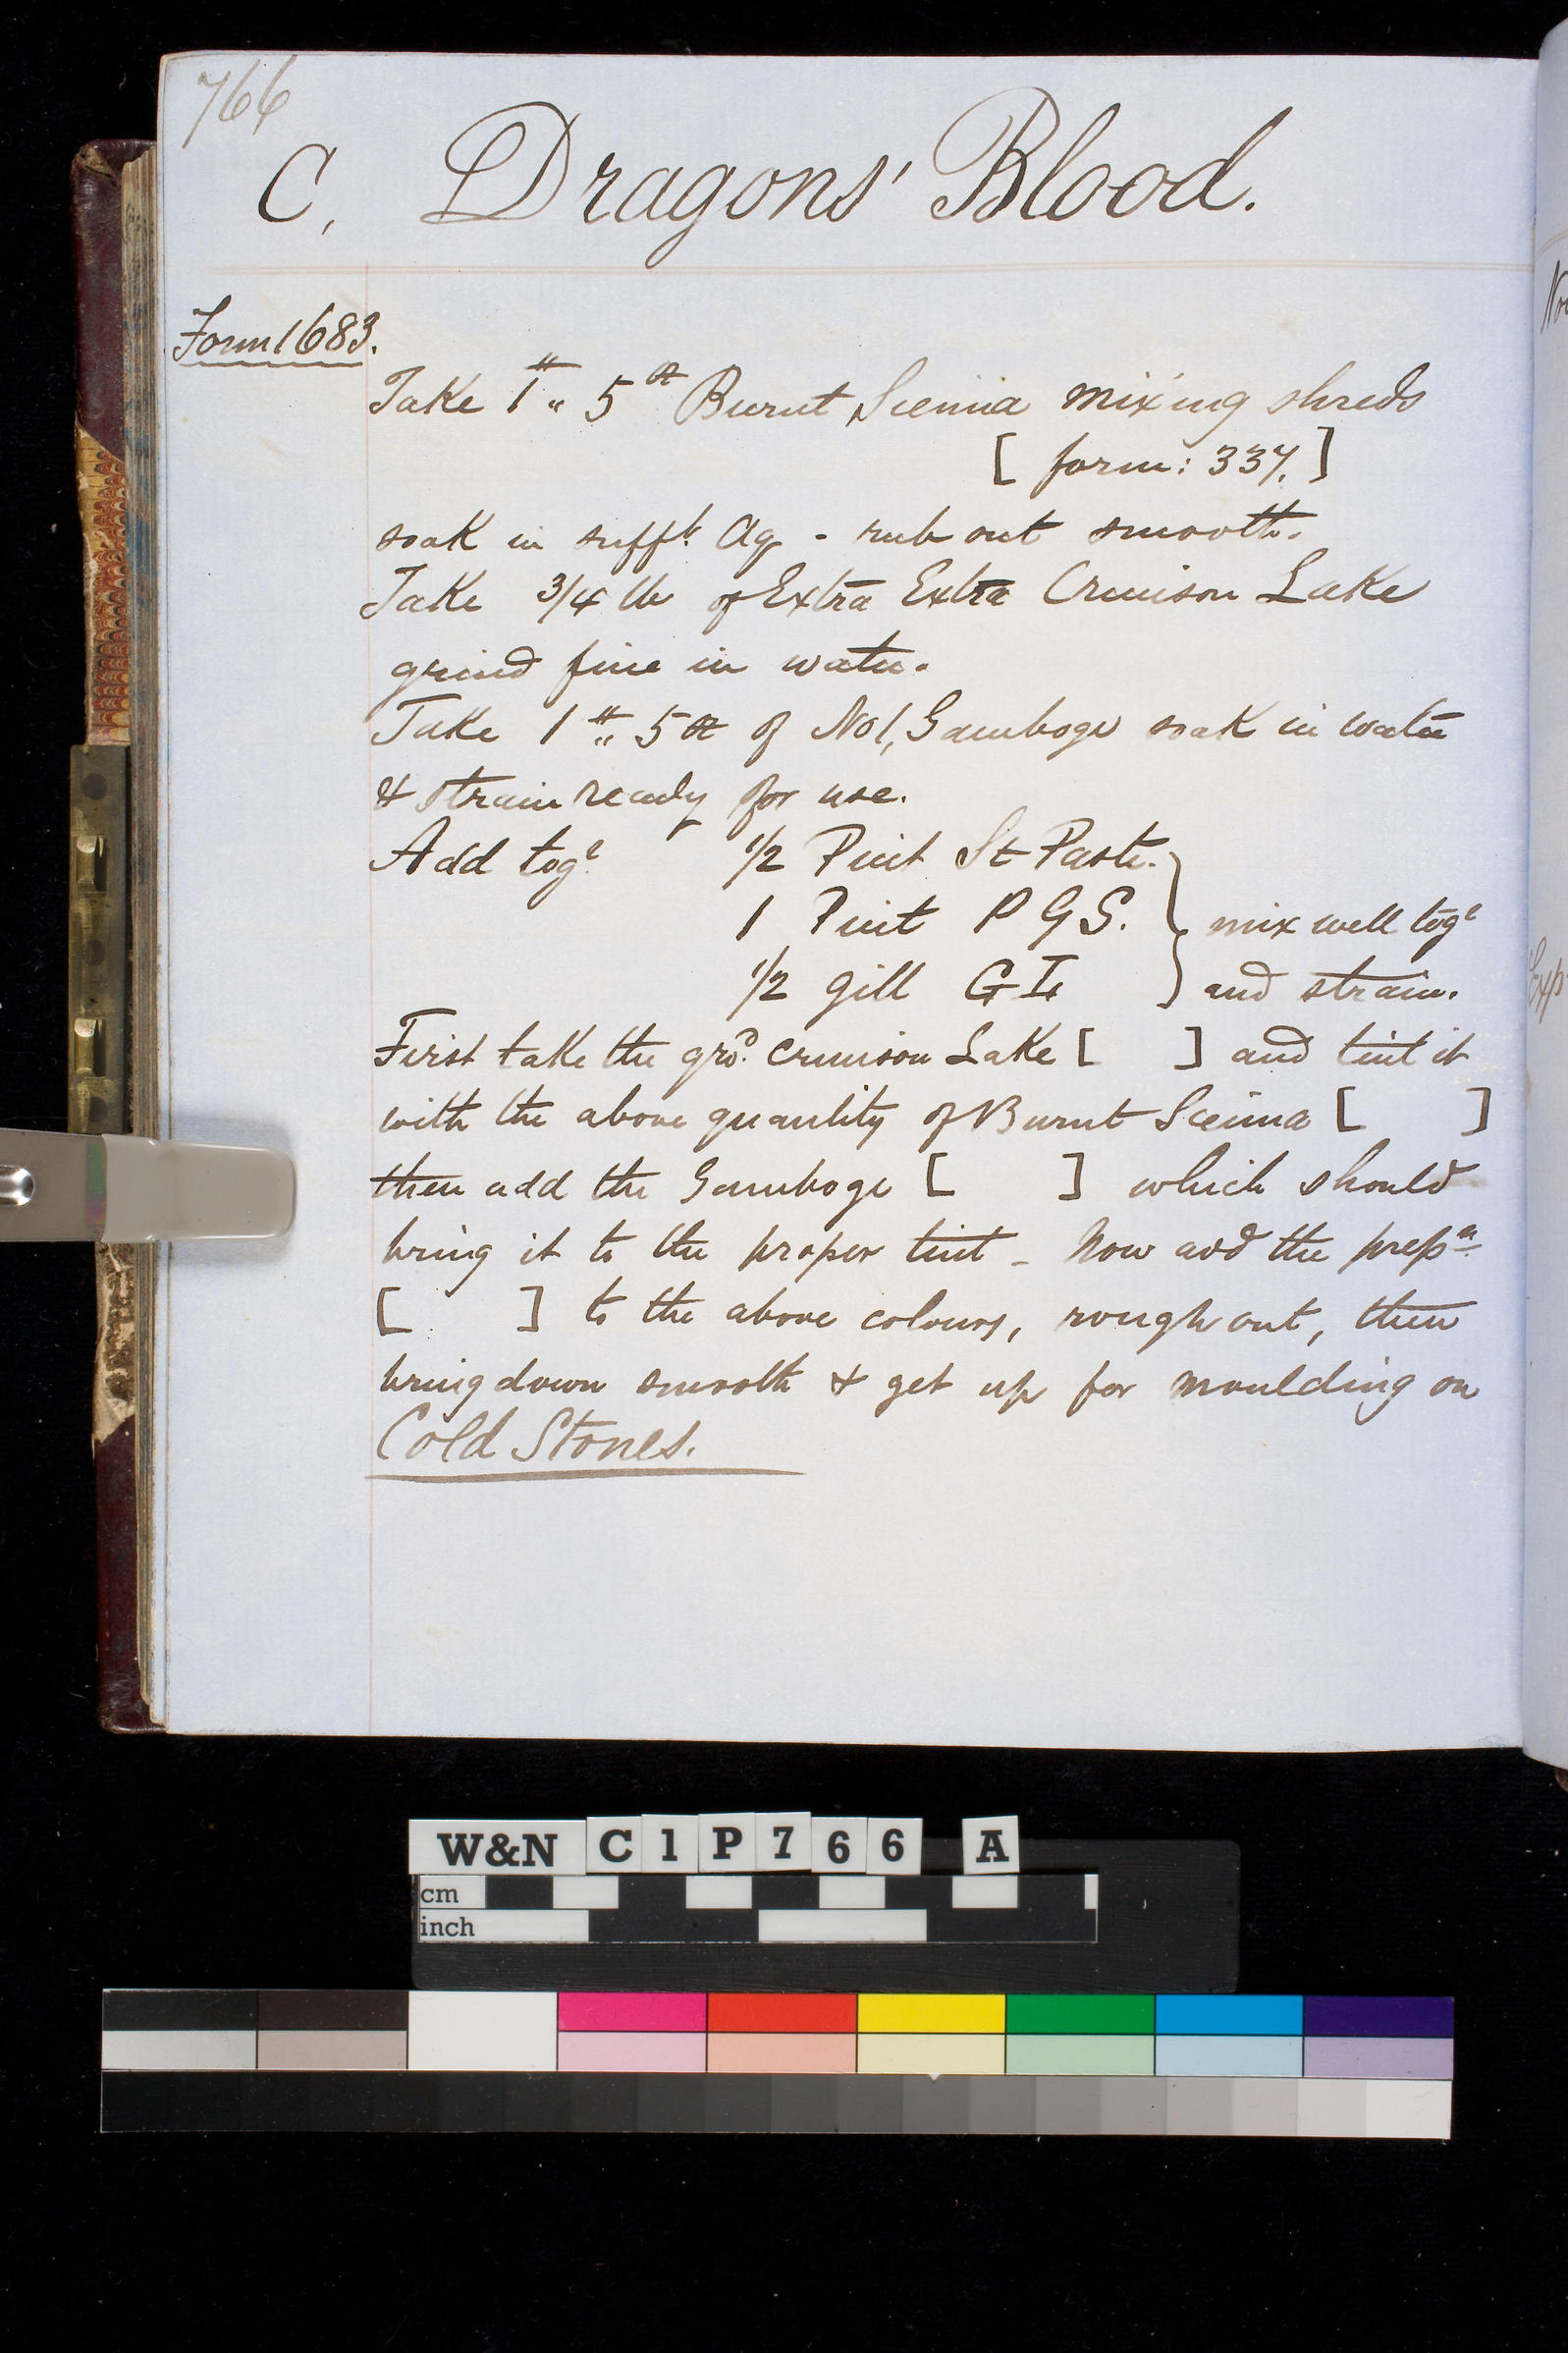 766
C. Dragons' Blood.
Form 1683.
Take 1 lb „ 5 oz Burnt Scenna mixing shreds
[ form: 337. ]
soak in sufft. Aq - rub out smooth.
Take 3/4 lb of Extra Extra Crimson Lake
grind fine in water.
Take 1 lb „ 5 oz of No1, Gamboge soak in water
& strain ready for use.
Add togr 1/2 Pint St Paste.
1 Pint P G S. } mix well togr
1/2 gill G I and strain.
First take the grd. crimson Lake [ ] and tint it
with the above quantity of Burnt Scenna [ ]
then add the Gamboge [ ] which should
bring it to the proper tint - Now add the prepn.
[ ] to the above colours, rough out, then
bring down smooth & get up for moulding on
Cold Stones.
Exp
W&N C1P766 A
cm
inch